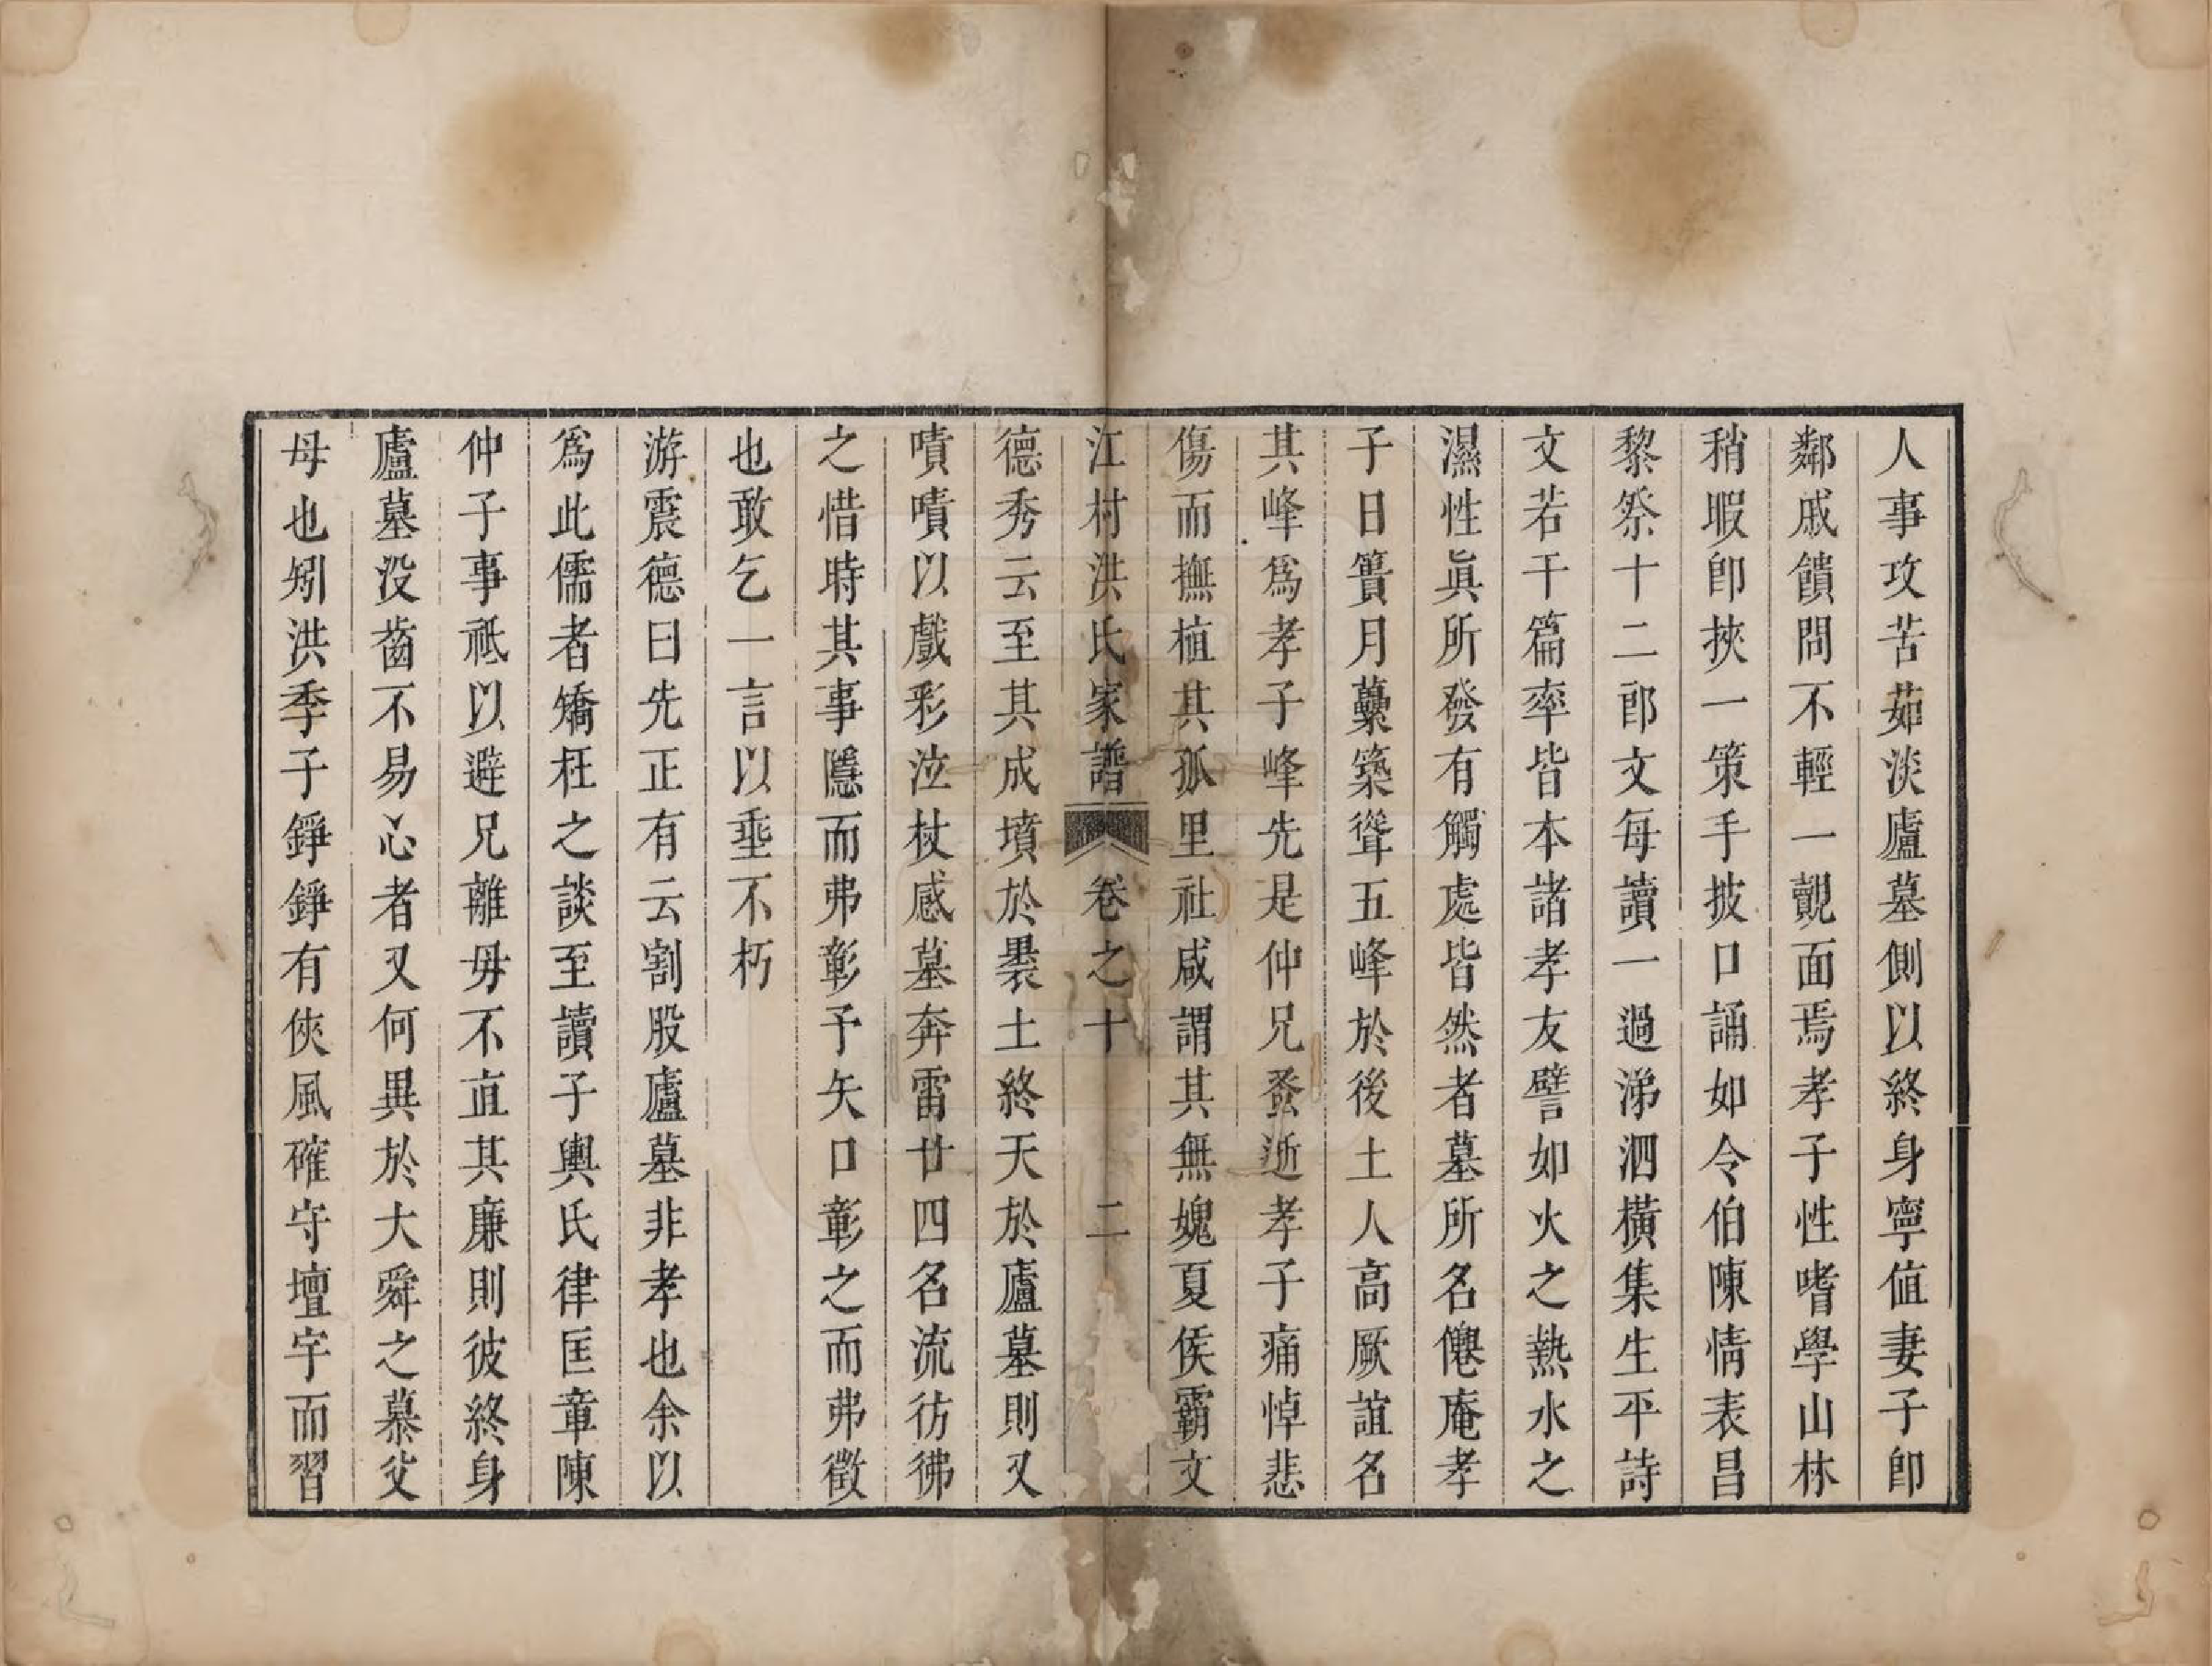 人事攻苦茹淡廬墓側以終身寧値妻子卽
鄰戚饋問不輕一覿面焉孝子性嗜學山林
稍暇卽挾一策手披口誦如令伯陳情表昌
黎祭十二郎文每讀一過涕泗橫集生平詩
文若干篇率皆本諸孝友譬如火之熱水之
濕性眞所發有觸處皆然者墓所名僊庵孝
子日簣月虆築聳五峰於後土人高厥誼名
其峰爲孝子峰先是仲兄蚤逝孝子痛悼悲
傷而撫植其孤里社咸謂其無媿夏侯霸文
江村洪氏家譜 卷之十 二
德秀云至其成墳於褁土終天於廬墓則又
嘖嘖以戲彩泣杖感墓奔雷廿四名流彷彿
之惜時其事隱而弗彰予矢口彰之而弗徵
也敢乞一言以垂不朽
游震德曰先正有云割股廬墓非孝也余以
爲此儒者矯枉之談至讀子輿氏律匡章陳
仲子事祗以避兄離毋不直其廉則彼終身
廬墓没齒不易心者又何異於大舜之慕父
母也矧洪季子錚錚有俠風確守壇宇而習